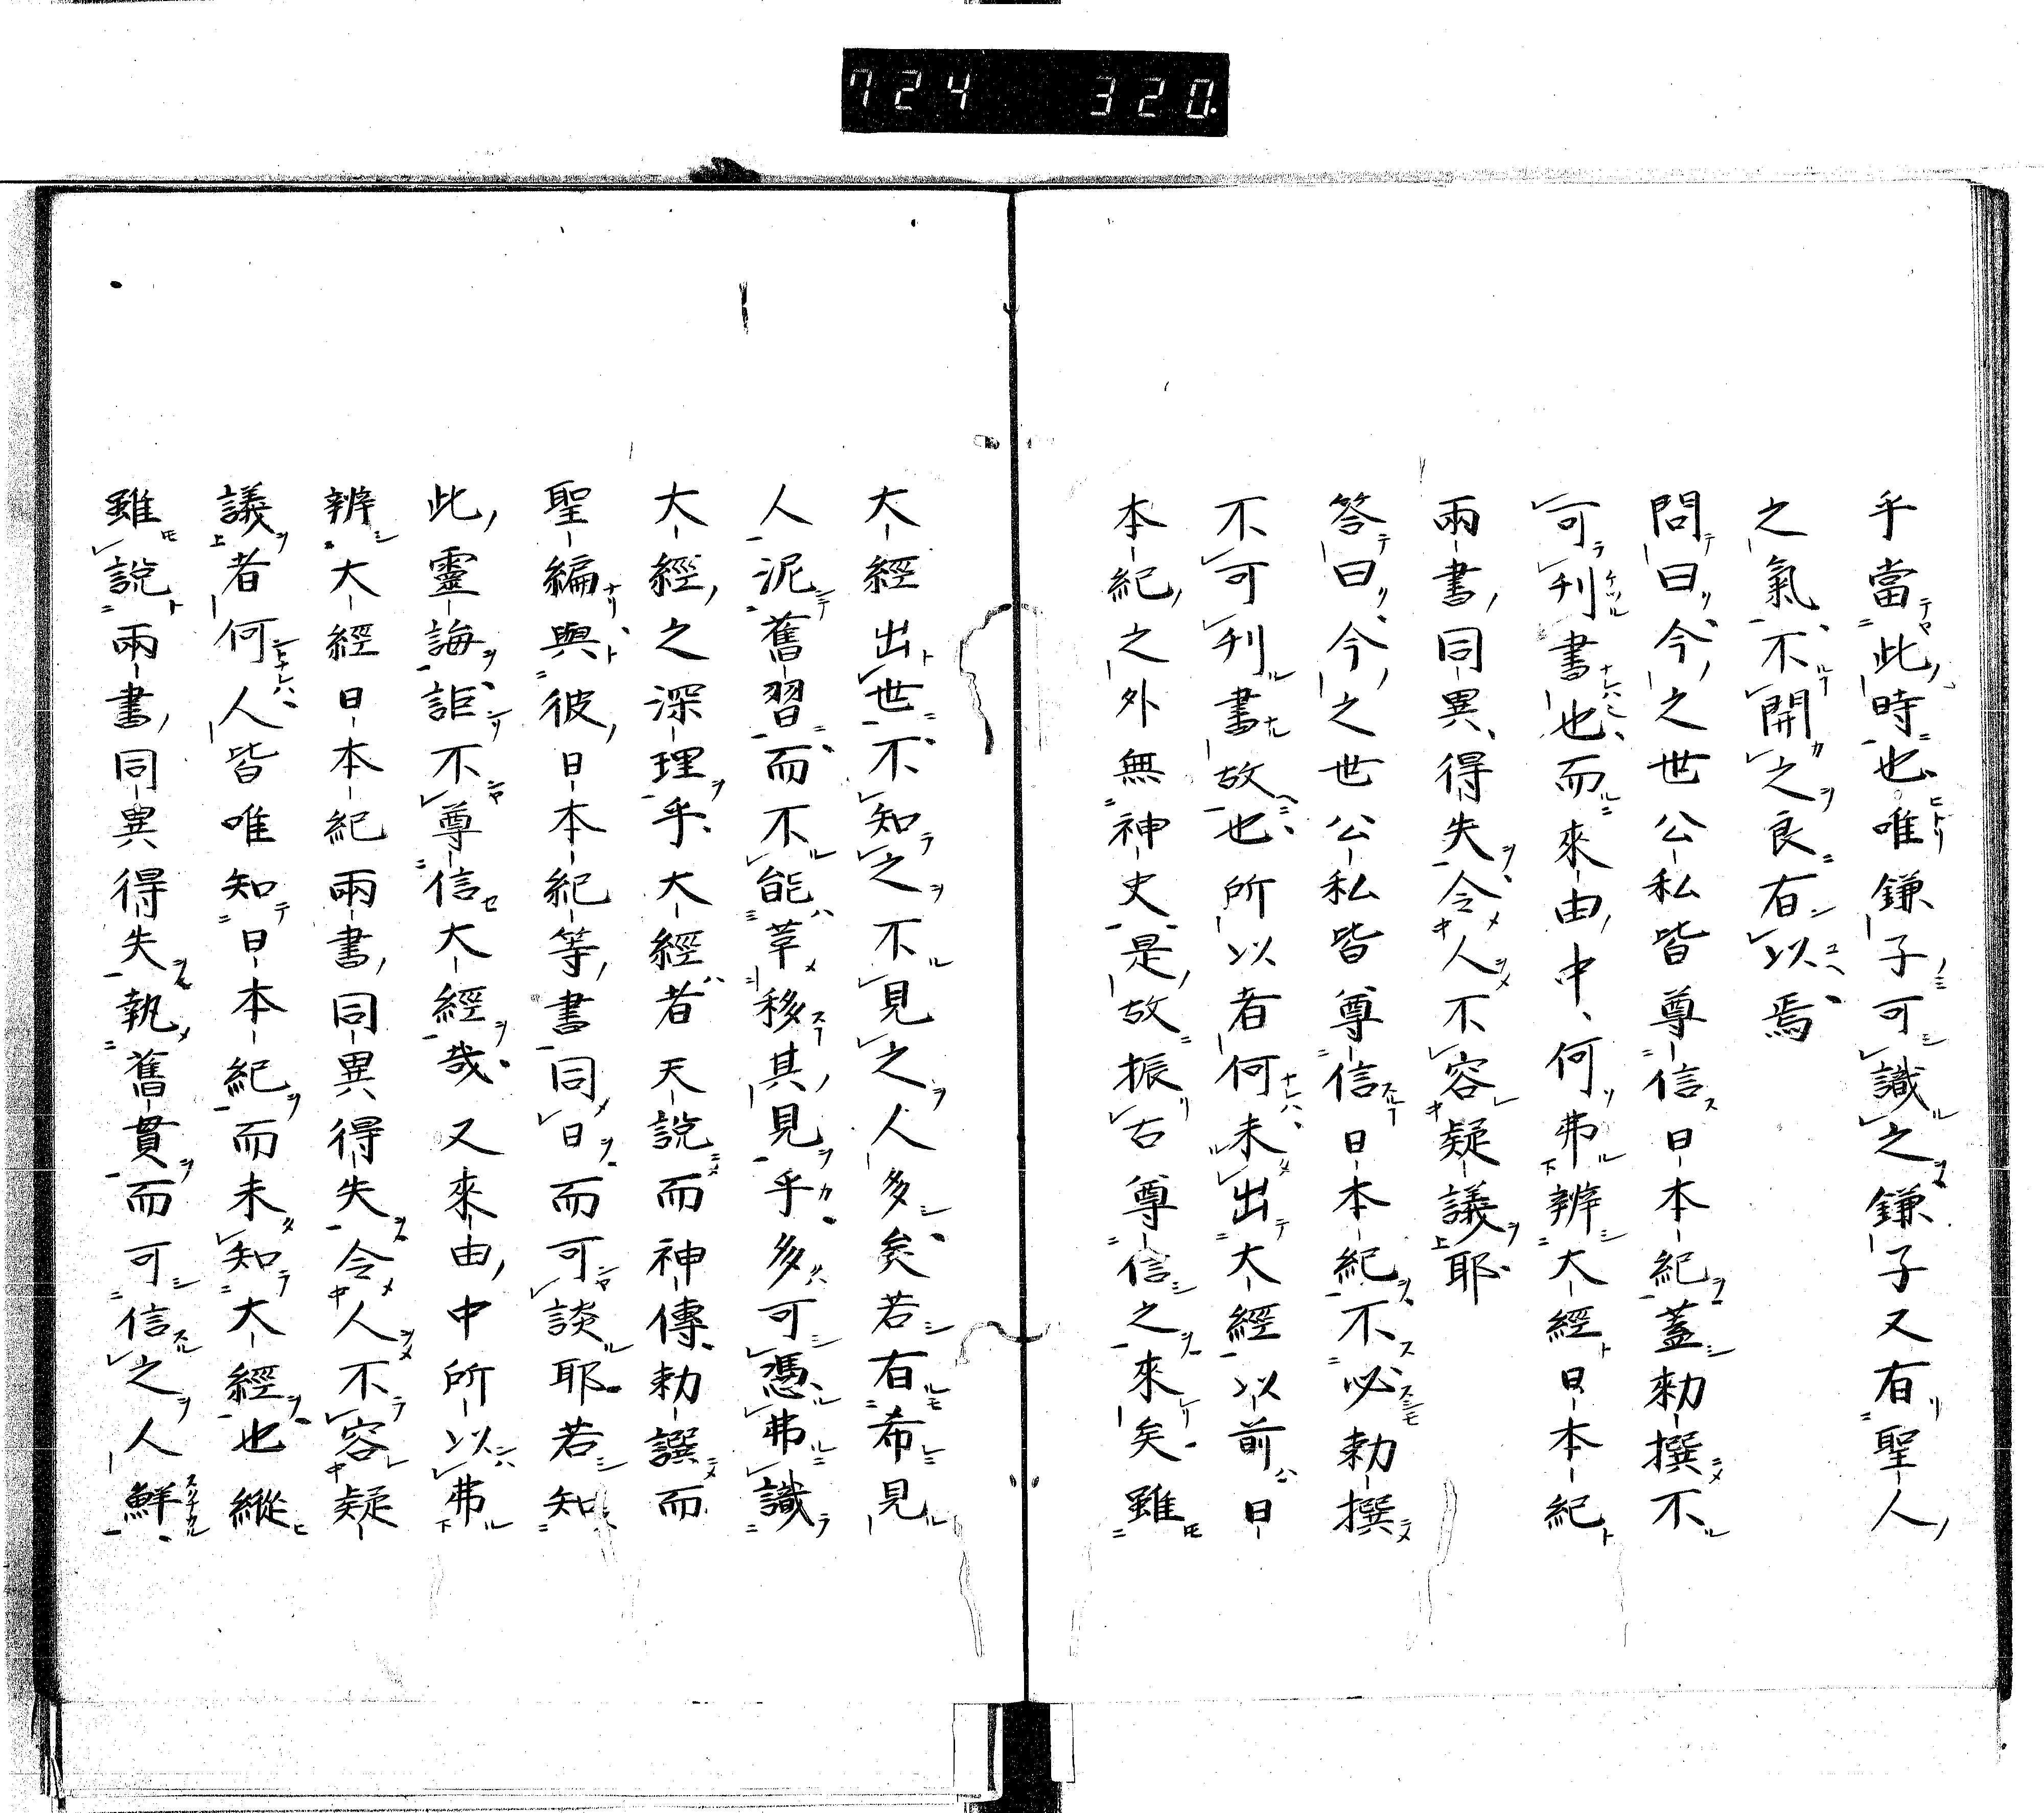 724 320.
乎當此時也唯鎌子可識之鎌子又有聖人
之氣不開之良有以焉
問曰今之世公私皆尊信日本紀蓋勅撰不
可刊書也而來由中何弗辨大經日本紀
兩書同異得失令人不容疑議耶
答曰今之世公私皆尊信日本紀不必勅撰
不可刊書故也所以者何未出大經以前日
本紀之外無神史是故振古尊信之來矣雖
大經出世不知之不見之人多矣若有希見
人泥舊習而不能革移其見乎多可憑弗識
大經之深理乎大經者天說而神傳勅譔而
聖編與彼日本紀等書同日而可談耶若知
此靈誨詎不尊信大經哉又來由中所以弗
辨大經日本紀兩書同異得失令人不容疑
議者何人皆唯知日本紀而未知大經也縱
雖說兩書同異得失執舊貫而可信之人鮮